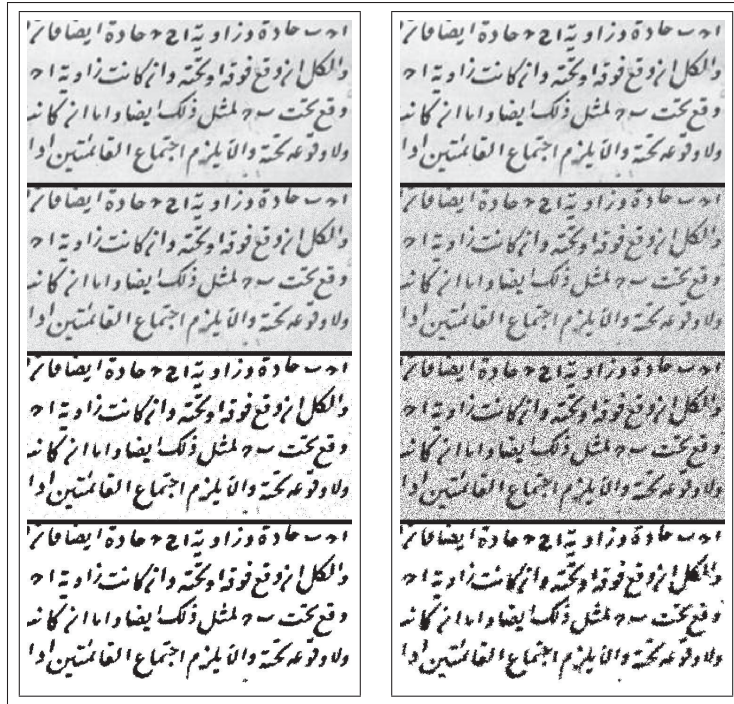 حادة وزاوية ا ج ء حادة ايضا فان
والكل ان وقع فوقه او تحته وان كانت زاوية ا ح
وقع تحت ب ح لمثل ذلك ايضا واما ان كانت
ولا وقوعه تحته والا يلزم اجتماع القائمتين اذا
حادة وزاوية ا ج ء حادة ايضا فان
والكل ان وقع فوقه او تحته وان كانت زاوية ا ح
وقع تحت ب ح لمثل ذلك ايضا واما ان كانت
ولا وقوعه تحته والا يلزم اجتماع القائمتين اذا
حادة وزاوية ا ج ء حادة ايضا فان
والكل ان وقع فوقه او تحته وان كانت زاوية ا ح
وقع تحت ب ح لمثل ذلك ايضا واما ان كانت
ولا وقوعه تحته والا يلزم اجتماع القائمتين اذا
حادة وزاوية ا ج ء حادة ايضا فان
والكل ان وقع فوقه او تحته وان كانت زاوية ا ح
وقع تحت ب ح لمثل ذلك ايضا واما ان كانت
ولا وقوعه تحته والا يلزم اجتماع القائمتين اذا
حادة وزاوية ا ج ء حادة ايضا فان
والكل ان وقع فوقه او تحته وان كانت زاوية ا ح
وقع تحت ب ح لمثل ذلك ايضا واما ان كانت
ولا وقوعه تحته والا يلزم اجتماع القائمتين اذا
حادة وزاوية ا ج ء حادة ايضا فان
والكل ان وقع فوقه او تحته وان كانت زاوية ا ح
وقع تحت ب ح لمثل ذلك ايضا واما ان كانت
ولا وقوعه تحته والا يلزم اجتماع القائمتين اذا
حادة وزاوية ا ج ء حادة ايضا فان
والكل ان وقع فوقه او تحته وان كانت زاوية ا ح
وقع تحت ب ح لمثل ذلك ايضا واما ان كانت
ولا وقوعه تحته والا يلزم اجتماع القائمتين اذا
حادة وزاوية ا ج ء حادة ايضا فان
والكل ان وقع فوقه او تحته وان كانت زاوية ا ح
وقع تحت ب ح لمثل ذلك ايضا واما ان كانت
ولا وقوعه تحته والا يلزم اجتماع القائمتين اذا